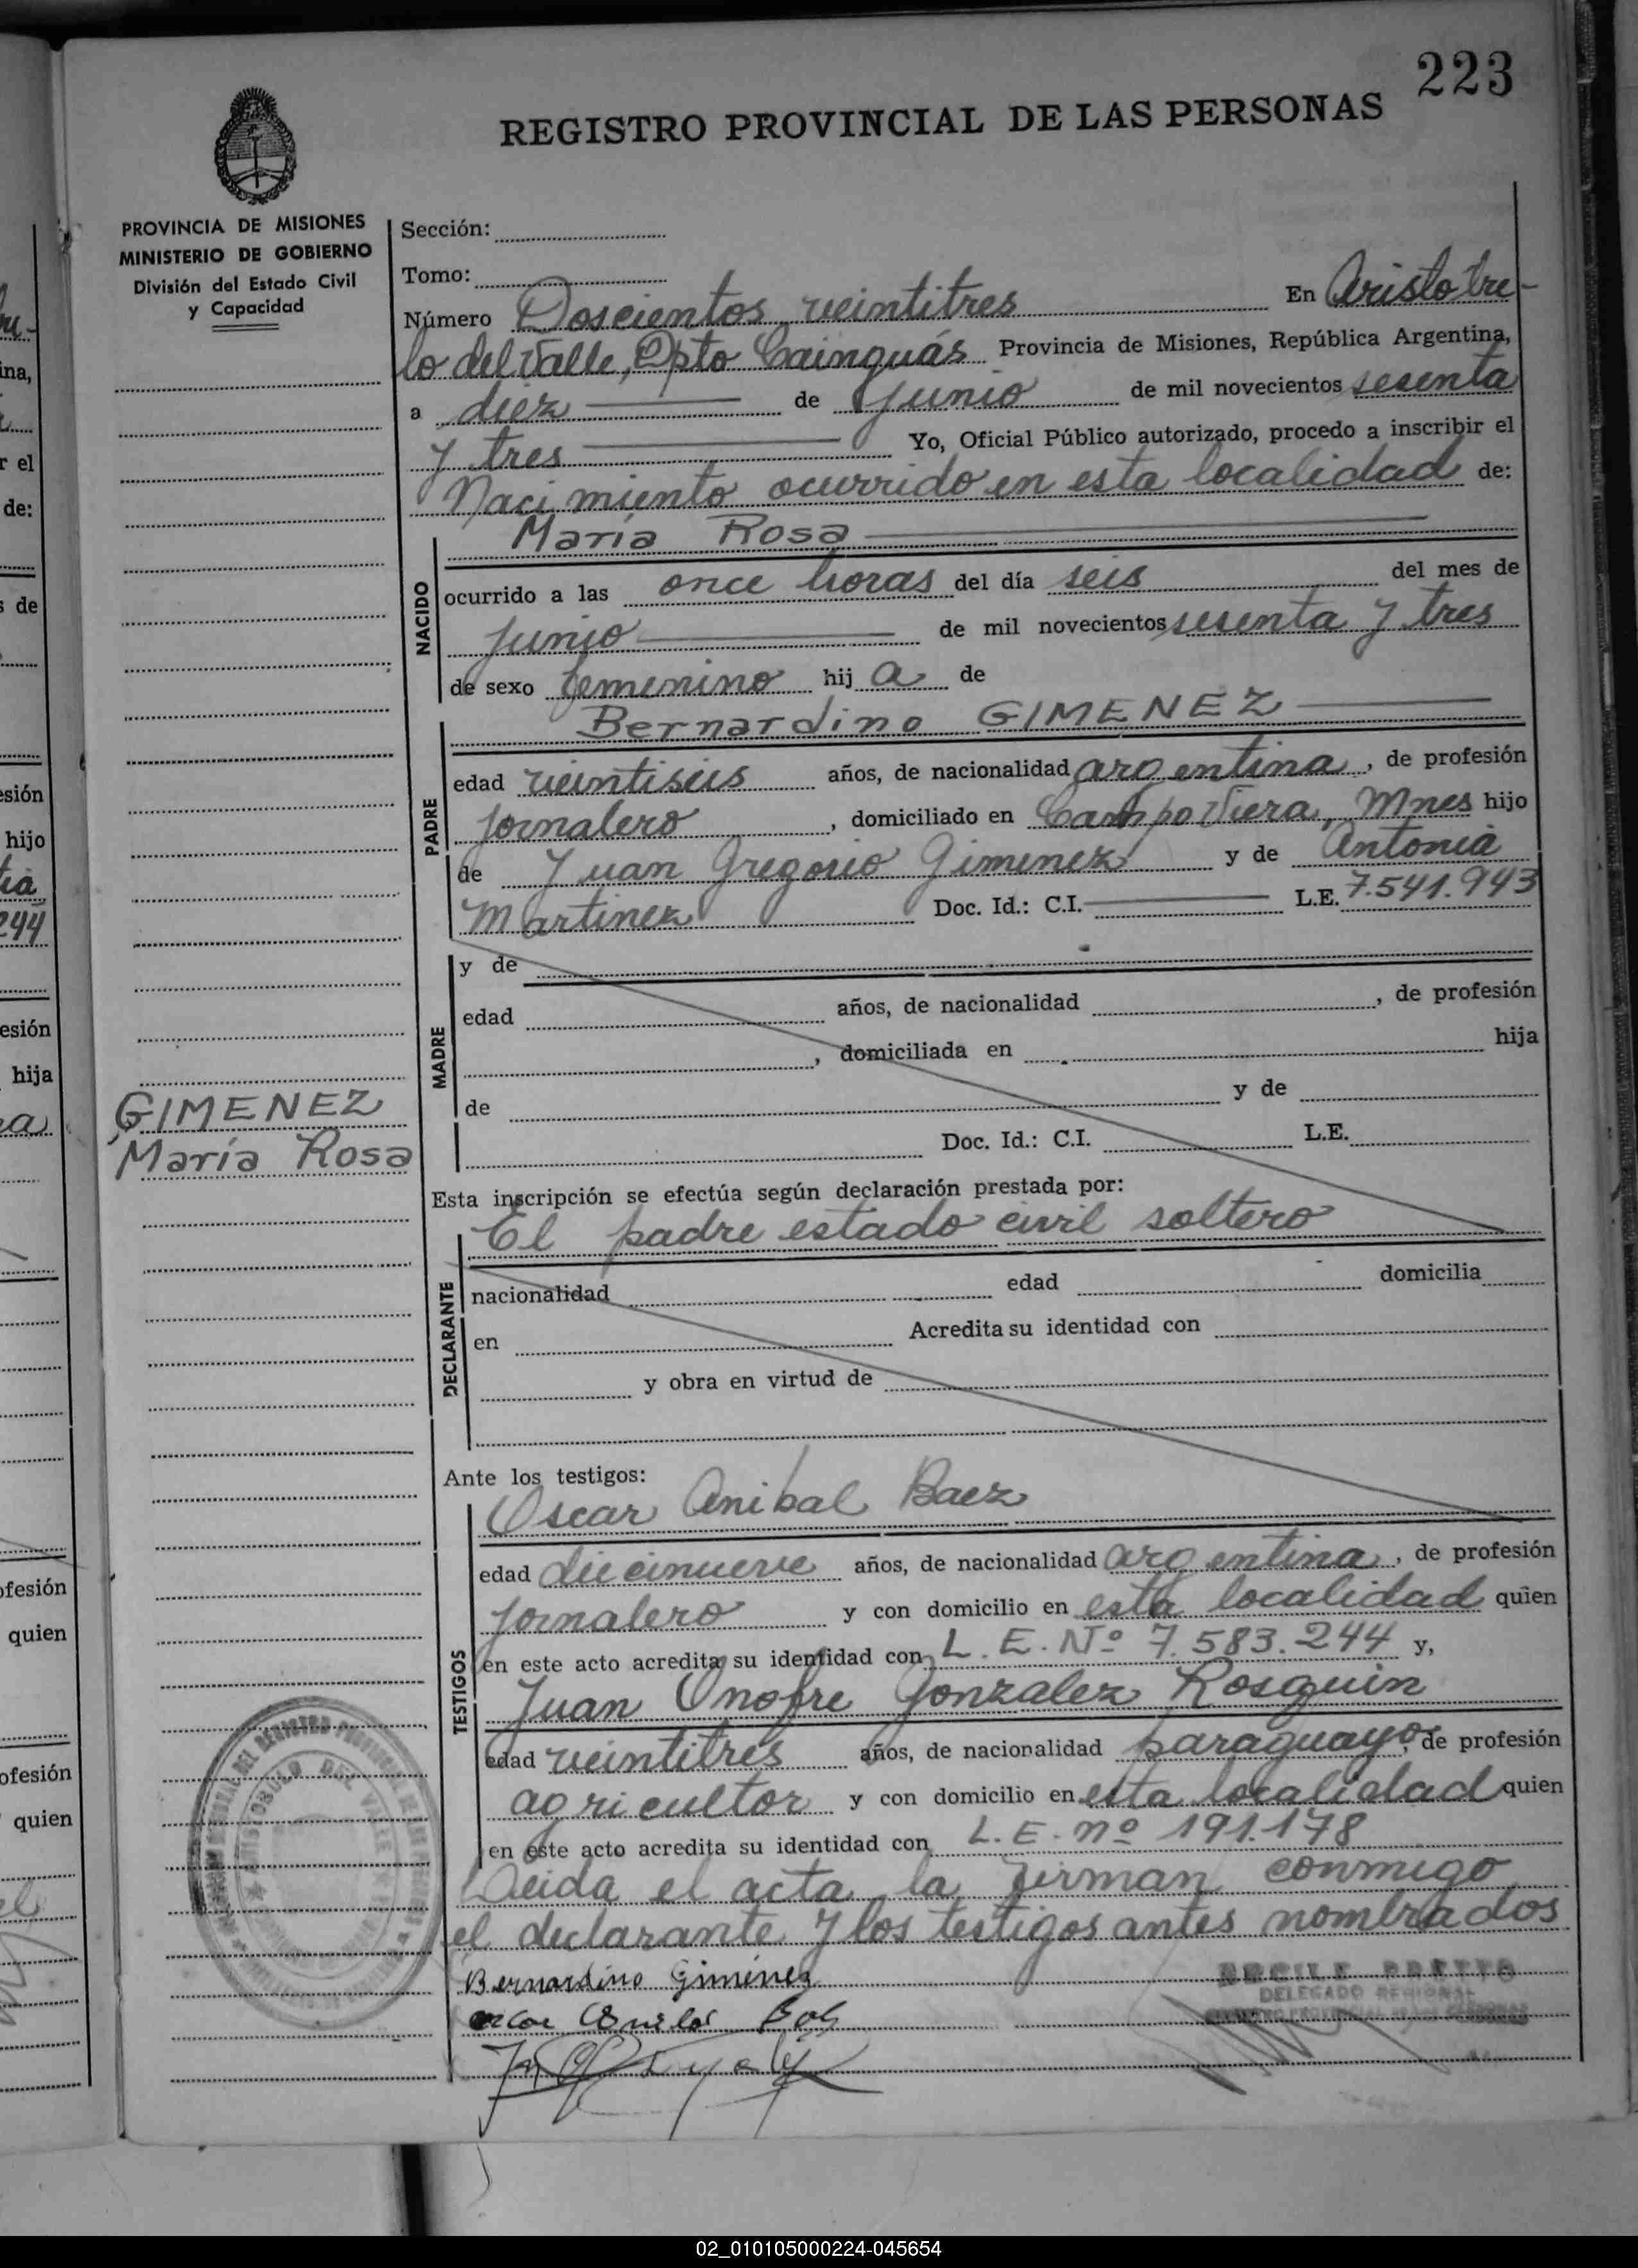 223
REGISTRO PROVINCIAL DE LAS PERSONAS
PROVINCIA DE MISIONES
MINISTERIO DE GOBIERNO
División del Estado Civil
y Capacidad
Sección:
Tomo:
Número Doscientos veintitres En Aristobu-
lo del Valle, Dpto Cainguás Provincia de Misiones, República Argentina,
a diez de Junio de mil novecientos sesenta
y tres Yo, Oficial Público autorizado, procedo a inscribir el
Nacimiento ocurrido en esta localidad de:
NACIDO
María Rosa
ocurrido a las once horas del día seis del mes de
Junio de mil novecientos sesenta y tres
de sexo femenino hij a de
PADRE
Bernardino GIMENEZ
edad veintiseis años, de nacionalidad argentina, de profesión
jornalero, domiciliado en Campo Viera, Mnes hijo
de Juan Gregorio Gimenez y de Antonia
Martinez Doc. Id.: C.I. L.E. 7.541.943
MADRE
y de
edad años, de nacionalidad , de profesión
, domiciliada en hija
de y de
Doc. Id.: C.I. L.E.
GIMENEZ
María Rosa
Esta inscripción se efectúa según declaración prestada por:
DECLARANTE
El padre estado civil soltero
nacionalidad edad domicilia
en Acredita su identidad con
y obra en virtud de
Ante los testigos:
TESTIGOS
Oscar Anibal Baez
edad diecinueve años, de nacionalidad argentina, de profesión
jornalero y con domicilio en esta localidad quien
en este acto acredita su identidad con L.E. Nº 7.583.244 y,
Juan Onofre Gonzalez Rosquin
edad veintitres años, de nacionalidad paraguayo, de profesión
agricultor y con domicilio en esta localidad quien
en este acto acredita su identidad con L.E. nº 191.178
Leida el acta la firman conmigo
el declarante y los testigos antes nombrados
Bernardino Gimenez
DELEGADO REGIONAL
ARISTOBULO DEL VALLE
02_010105000224-045654